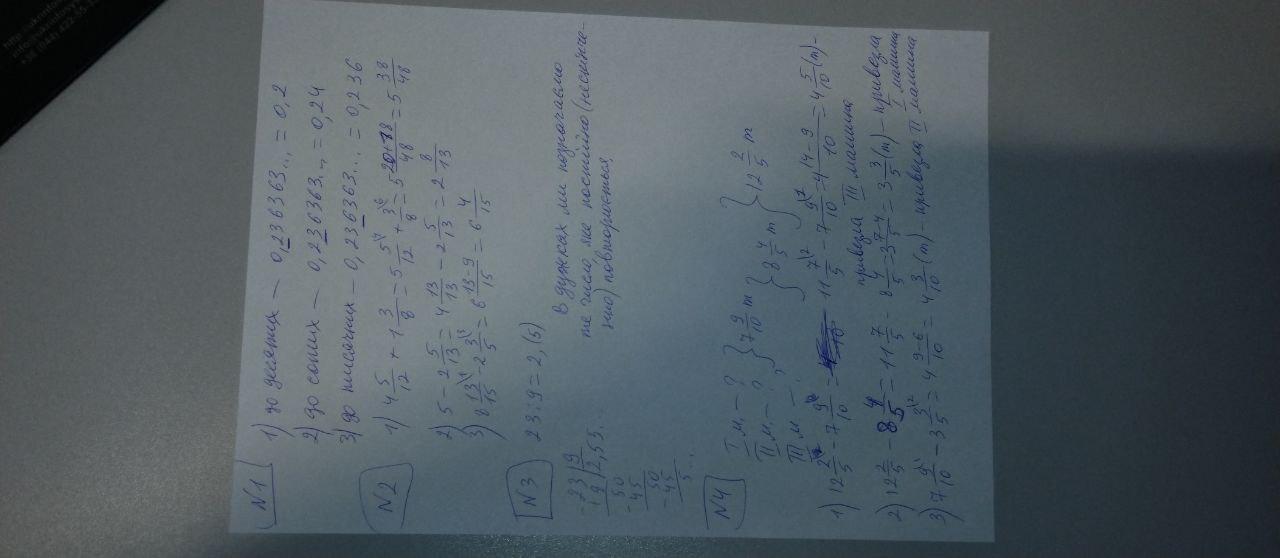 N1
1) до десятих — 0,236363... = 0,2
2) до сотих — 0,236363... = 0,24
3) до тисячних — 0,236363... = 0,236
N2
1) 4 5/12 + 1 3/8 = 5 5/12 + 3/8 = 5 20+18/48 = 5 38/48
2) 5 - 2 5/13 = 4 13/13 - 2 5/13 = 2 8/13
3) 8 13/15 - 2 3/5 = 6 13-9/15 = 6 4/15
N3
23:9 = 2,(5)
23 | 9
2,55...
50
45
50
45
5...
В дужках ми позначаємо
те число, яке постійно (нескінче-
нно) повторюється
N4
I м. — ?
II м. — ?
III м — ?
7 9/10 т
8 4/5 т
12 2/5 т
1) 12 2/5 - 7 9/10 = 11 7/5 - 7 9/10 = 4 14-9/10 = 4 5/10 (т) -
привезла III машина
2) 12 2/5 - 8 4/5 = 11 7/5 - 8 4/5 = 3 7-4/5 = 3 3/5 (т) - привезла
I машина
3) 7 9/10 - 3 3/5 = 4 9-6/10 = 4 3/10 (т) - привезла II машина